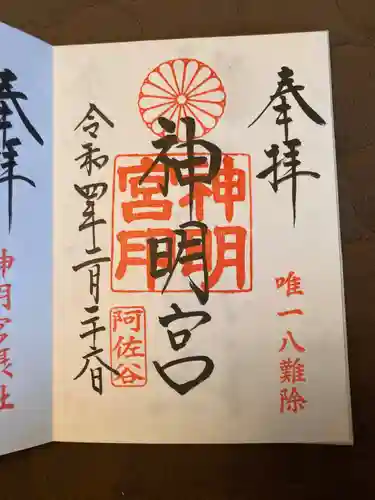 奉拝
唯一八難除
神明宮
神明
宮印
阿佐谷
令和四年二月二十六日
奉拝
神明宮